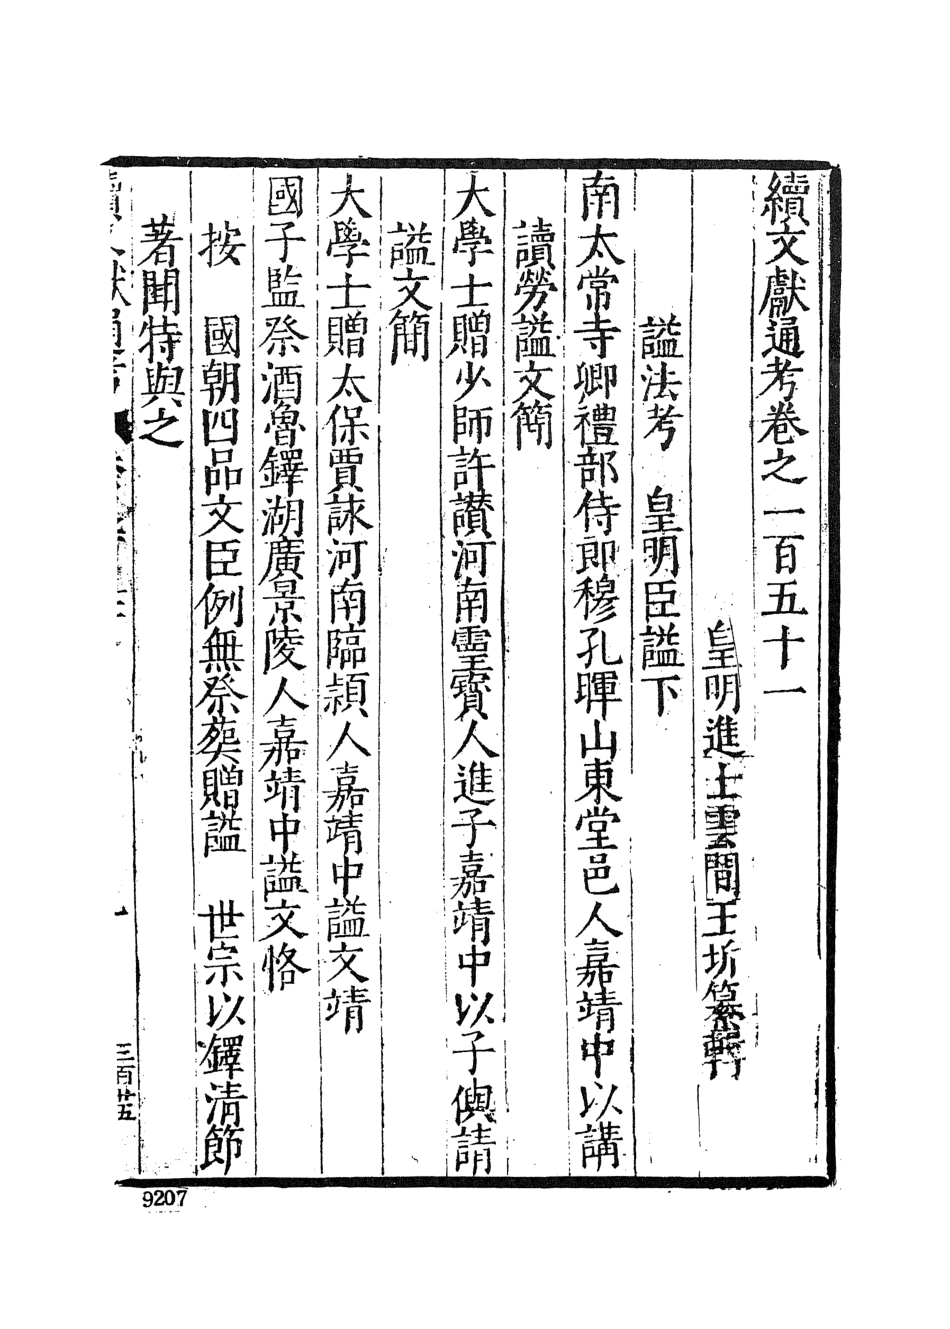 續文獻通考卷之一百五十一
皇明進士雲間王圻纂輯
謚法考　皇明臣謚下
南太常寺卿禮部侍郎穆孔暉山東堂邑人嘉靖中以講
讀勞謚文簡
大學士贈少師許讚河南靈寶人進子嘉靖中以子㒜請
謚文簡
大學士贈太保賈詠河南臨潁人嘉靖中謚文靖
國子監祭酒魯鐸湖廣景陵人嘉靖中謚文恪
按　國朝四品文臣例無祭葬贈謚　世宗以鐸清節
著聞特與之
續文獻通考
三百廿五
9207